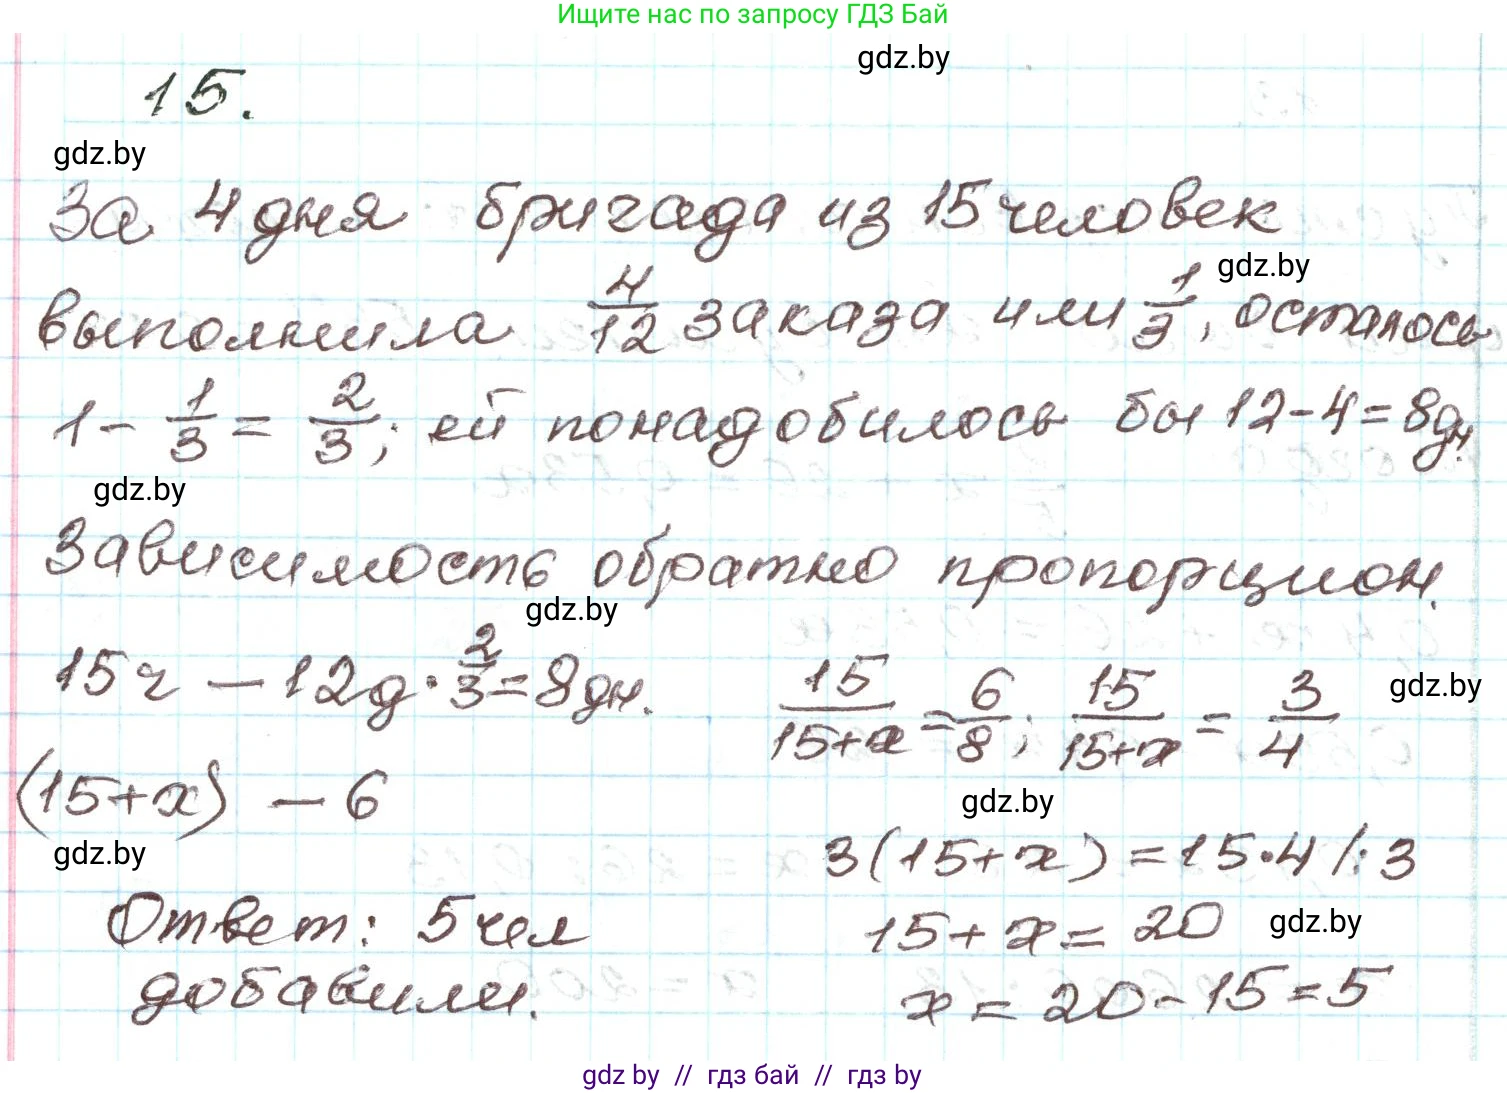 Ищите нас по запросу ГДЗ Бай
gdz.by
15.
gdz.by
За 4 дня бригада из 15 человек
gdz.by
выполнила 4/12 заказа или 1/3, осталось
1 - 1/3 = 2/3; ей понадобилось бы 12-4=8дн.
gdz.by
Зависимость обратно пропорцион.
gdz.by
15ч — 12д · 2/3 = 8дн.
15/(15+x) = 6/8; 15/(15+x) = 3/4
gdz.by
(15+x) — 6
gdz.by
gdz.by
3(15+x) = 15·4 /:3
Ответ: 5 чел
15 + x = 20
gdz.by
добавили.
x = 20 - 15 = 5
gdz by // гдз бай // гдз by